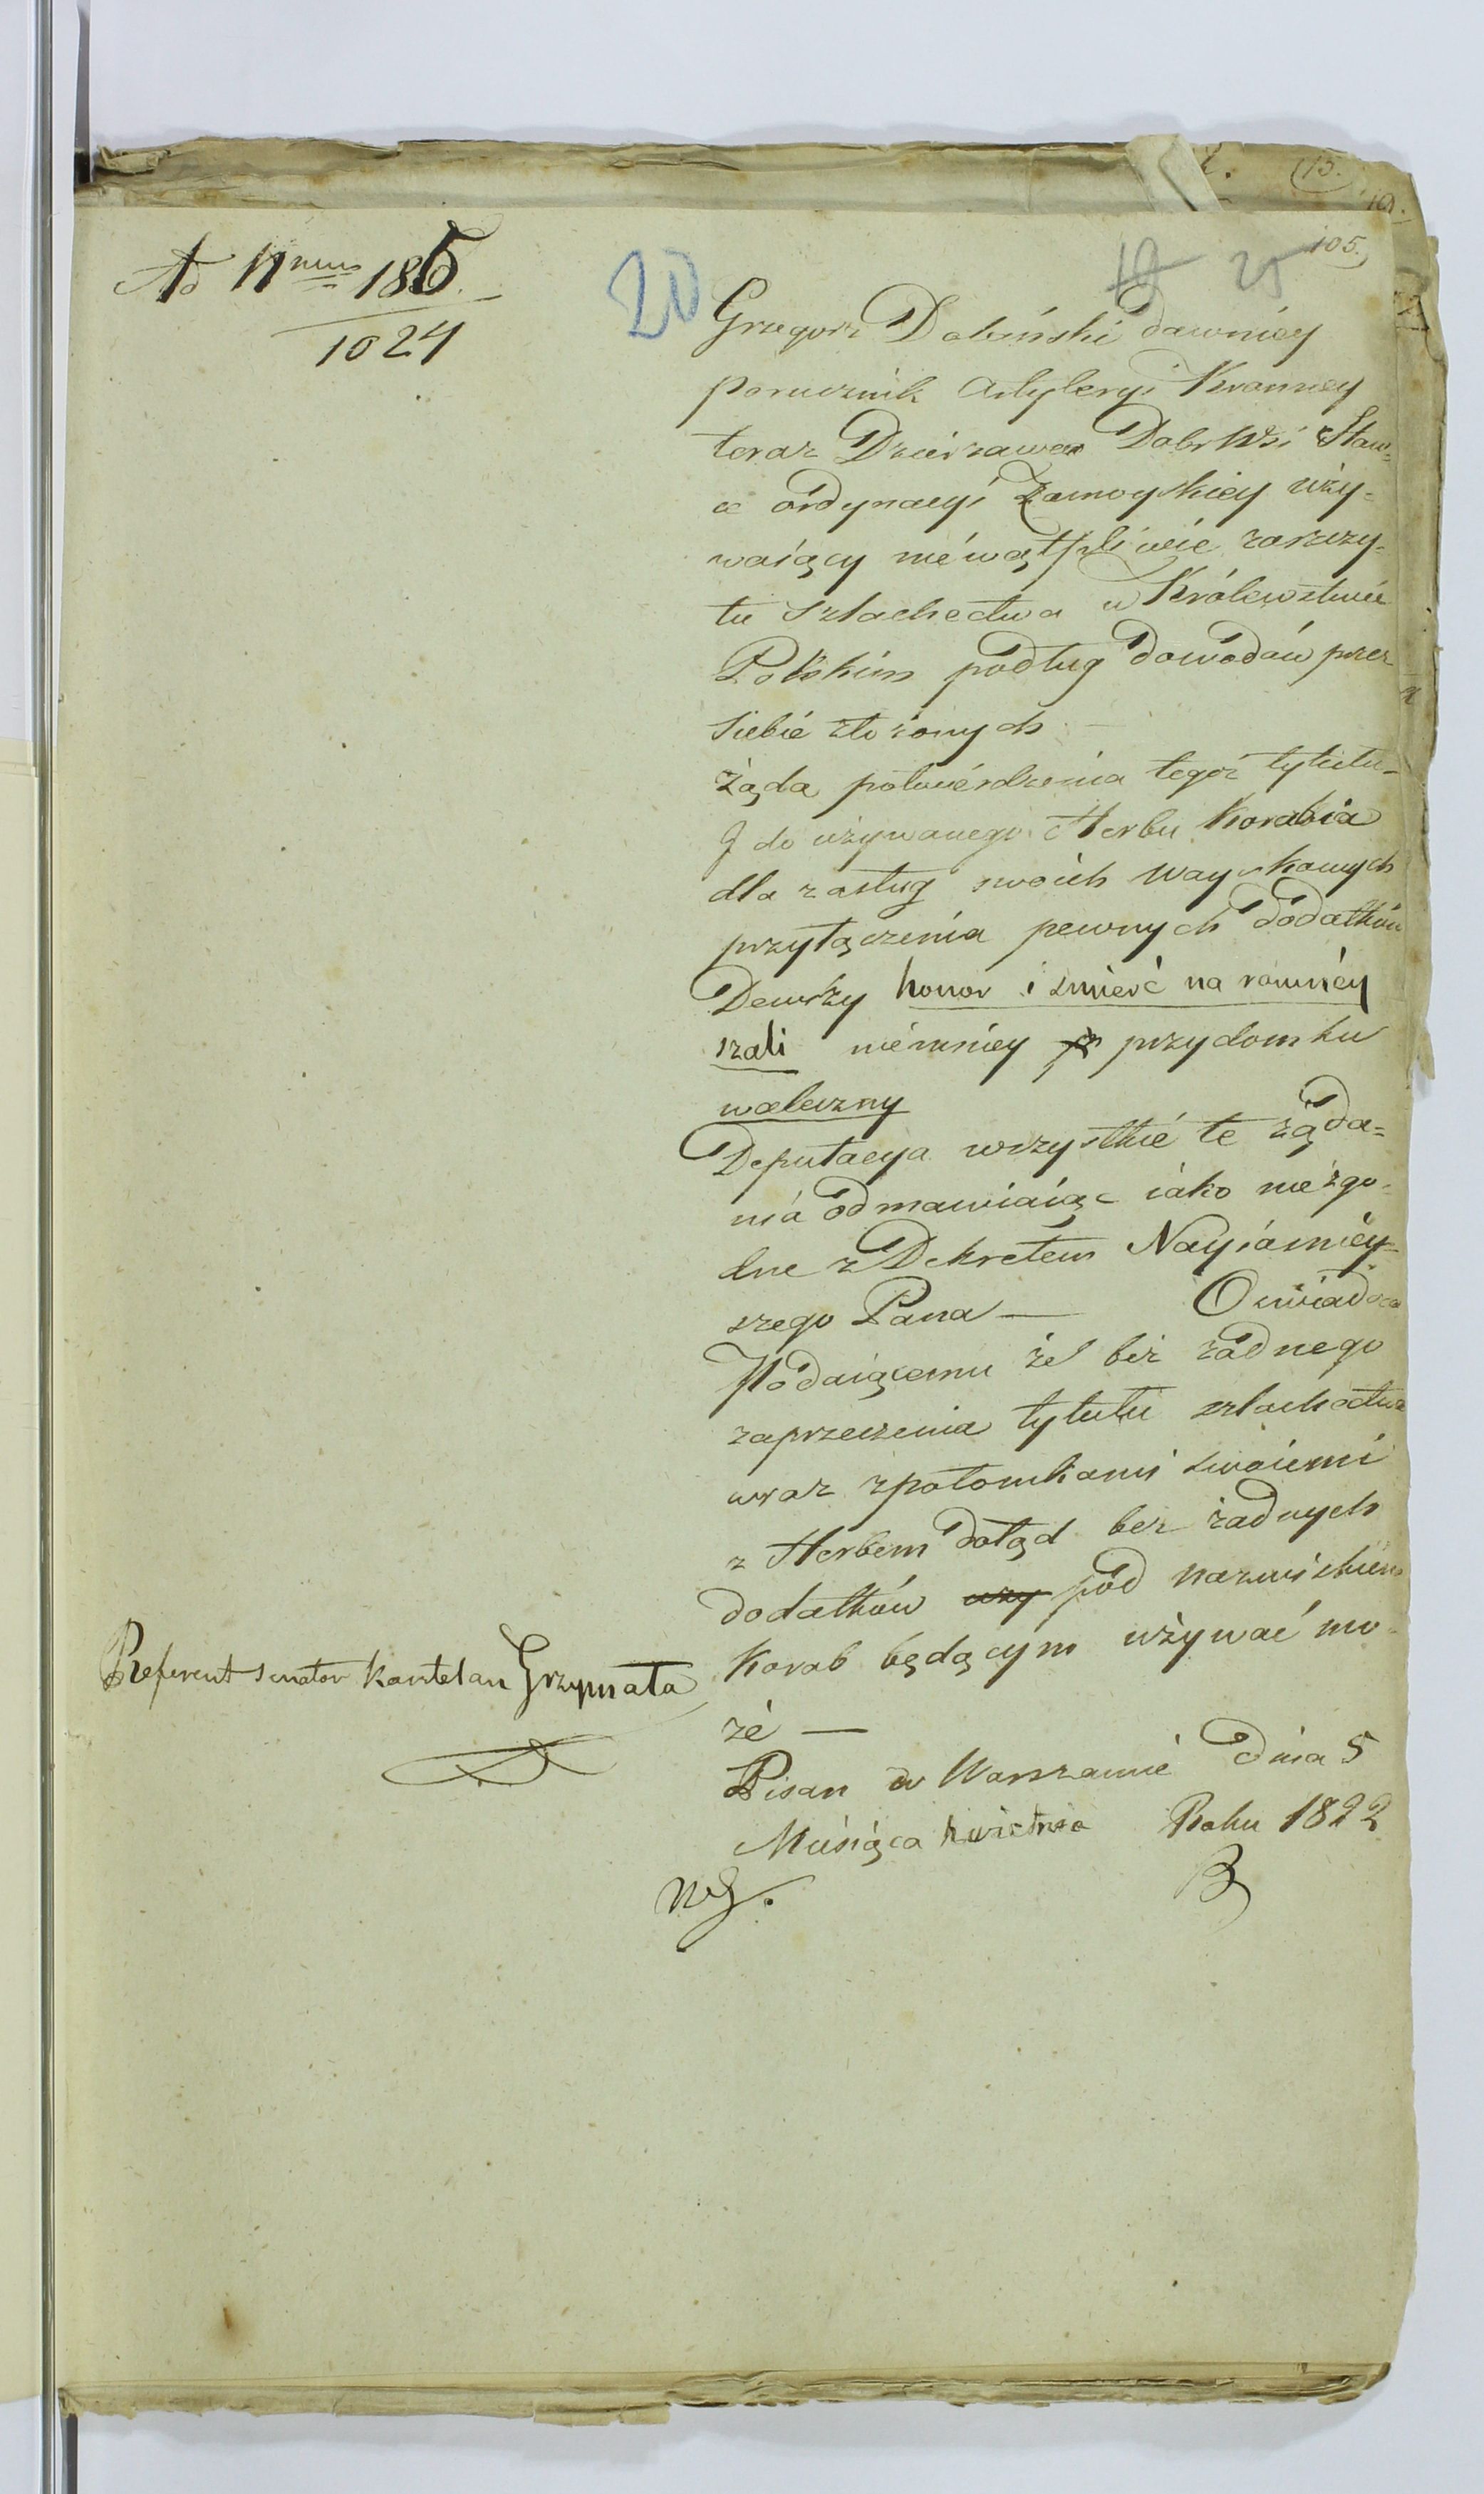 Ad Nrum 185
1024
20
19 25
105.
Grzegorz Dobiński dawniey
porucznik Artyleryi Konney
teraz Dzierzawca Dobr Wsi Staw=
ce ordynacyi Zamoyskiey uży=
waiący niéwątpliwie zaszczy=
tu szlachectwa w Królewstwie
Polskim podług dowodów przez
siebie złożonych —
żąda potwierdzenia tegoż tytułu=
J do używanego Herbu Korabia
dla zasług swoich Woyskowych
przyłączenia pewnych dodatków
Dewizy honor i śmierć na równiey
szali niémniey przydomku
waleczny
Deputacya wszystkié te żąda=
niá odmawiaiąc iáko niezgo=
dne z Dekretem Nayiásniéy=
szego Pana — Oświadcza
Podaiącemu że bez żadnego
zaprzeczenia tytułu szlachectwa
wraz z potomkami swoiemi
z Herbem dotąd bez żadnych
dodatków uzy pod nazwiskiem
Korab będącym używać mo=
że —
Pisan w Warszawie dnia 5
Miesiąca kwietnia Roku 1822
Referent senator kasztelan Grzymała
NG. B